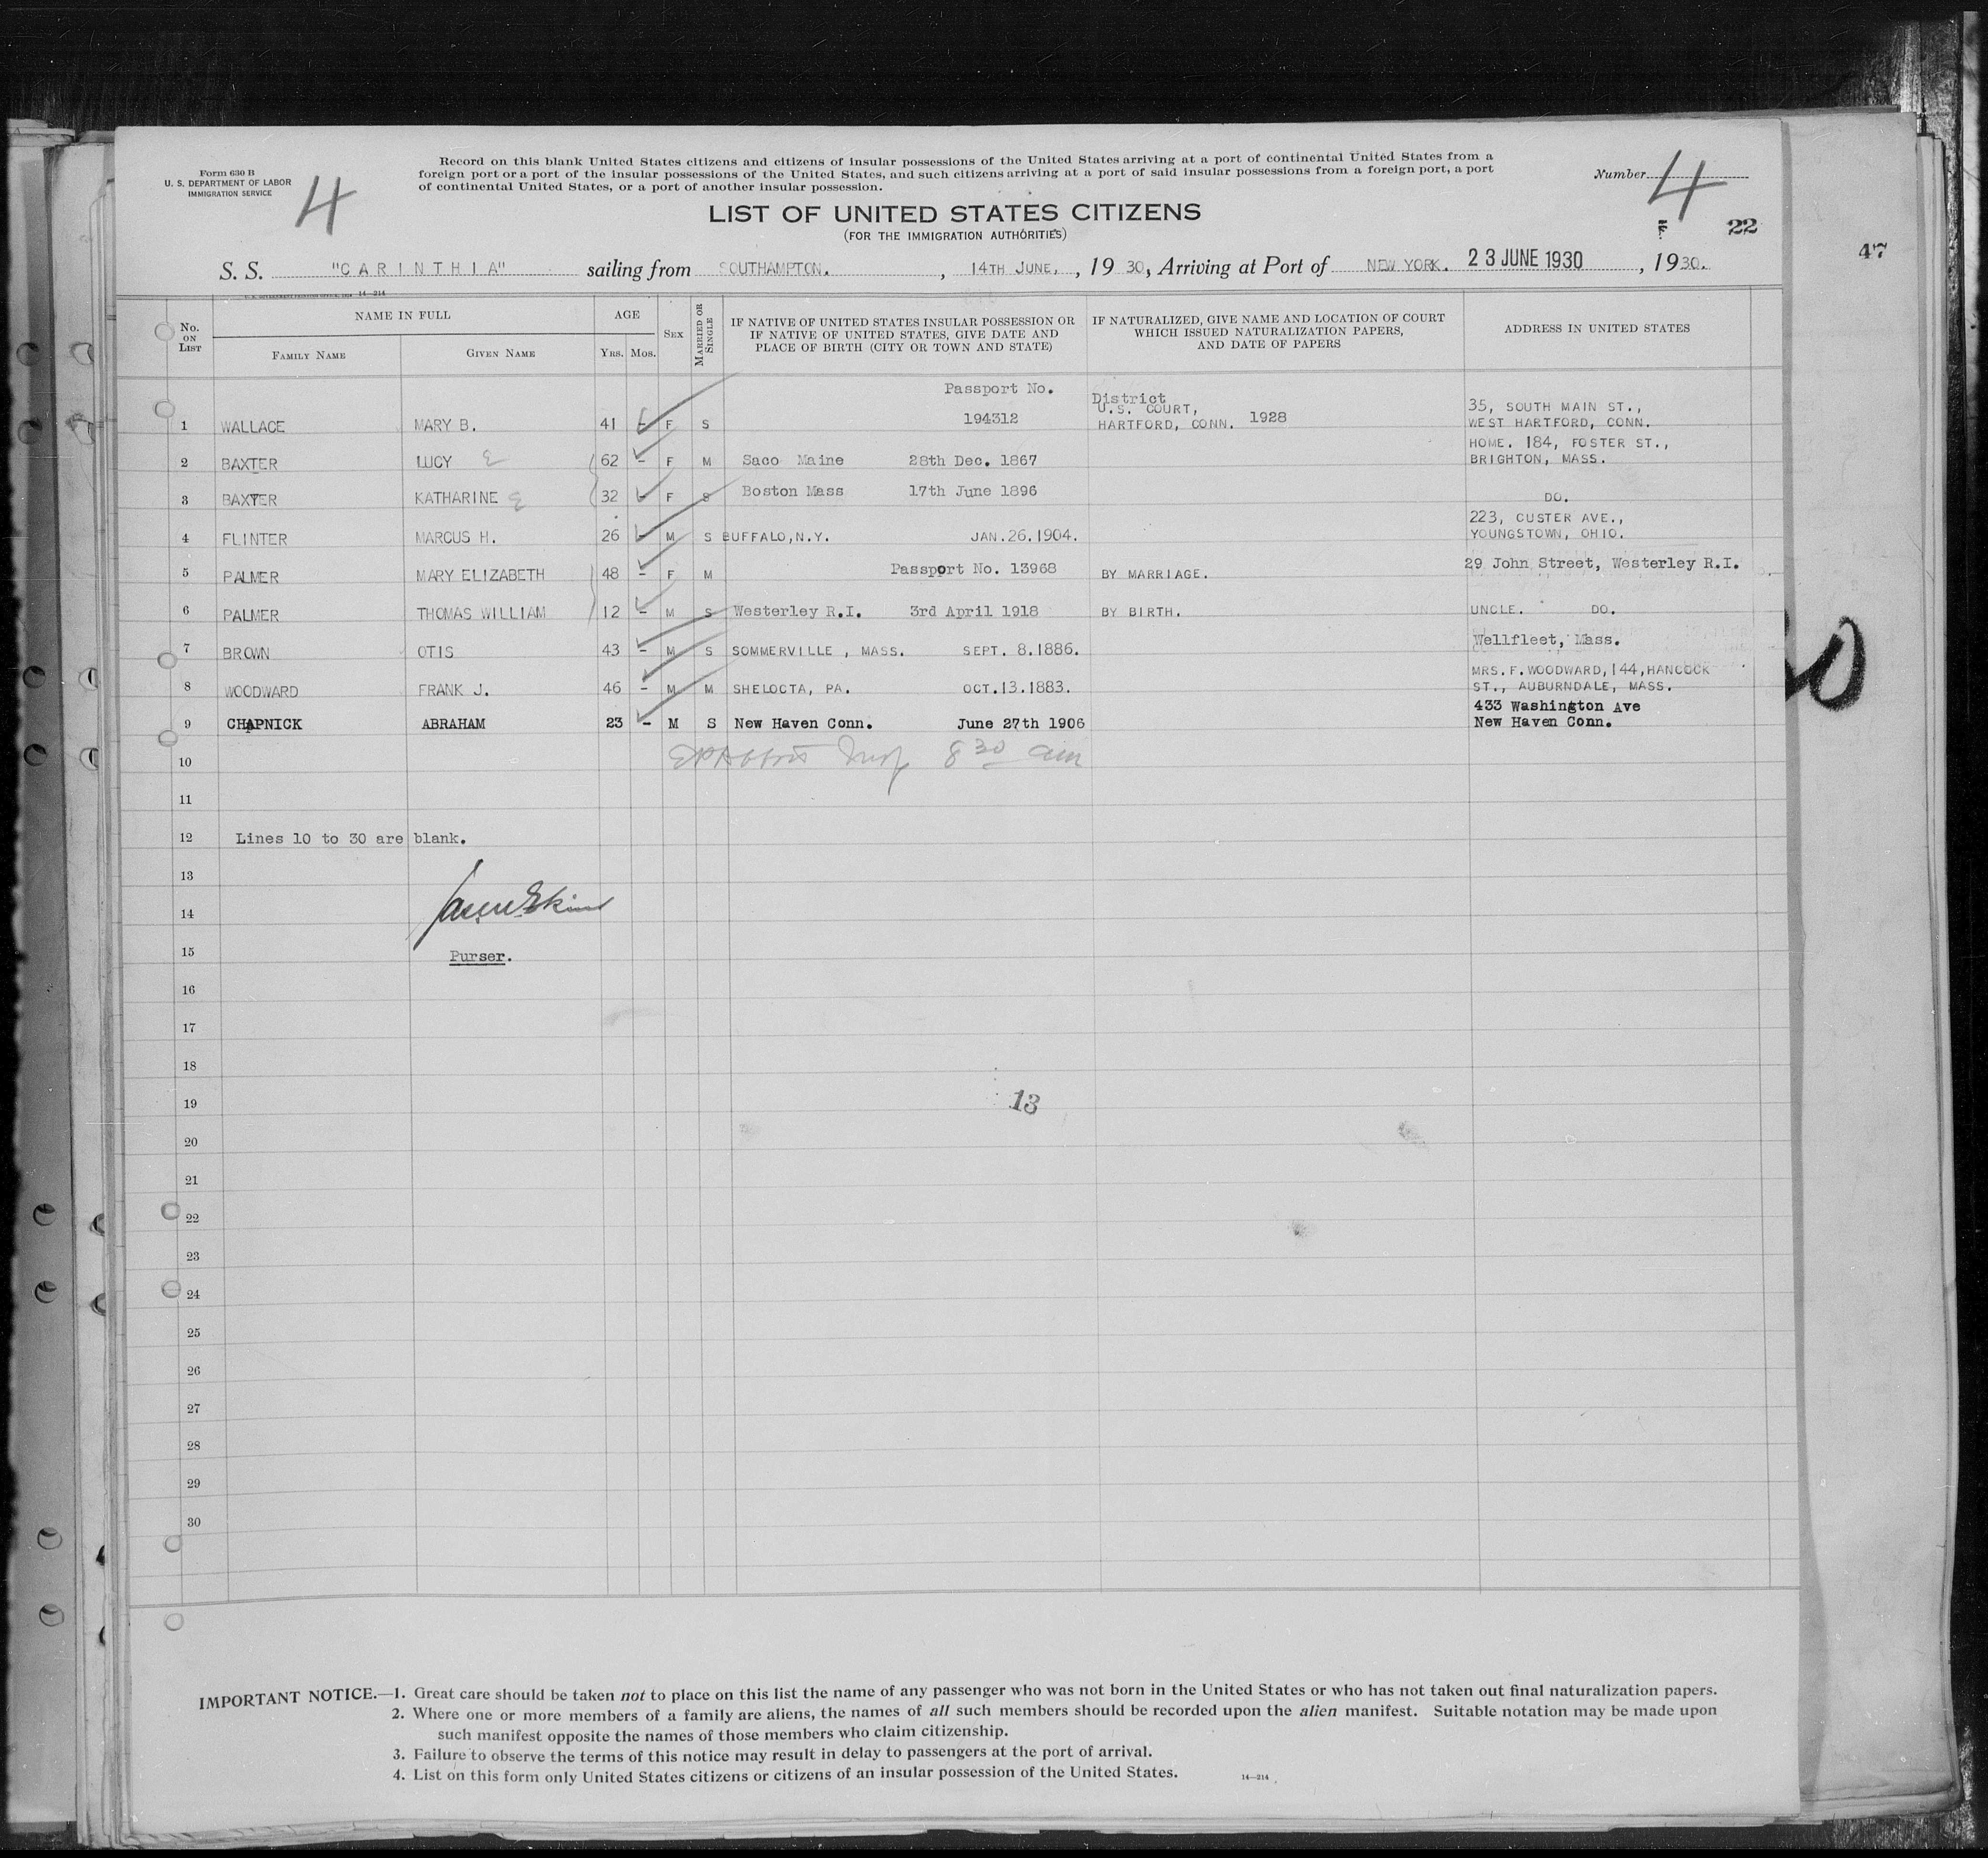 Form 630 B
U. S. DEPARTMENT OF LABOR
IMMIGRATION SERVICE
4
Record on this blank United States citizens and citizens of insular possessions of the United States arriving at a port of continental United States from a
foreign port or a port of the insular possessions of the United States, and such citizens arriving at a port of said insular possessions from a foreign port, a port
of continental United States, or a port of another insular possession.
Number 4
LIST OF UNITED STATES CITIZENS
(FOR THE IMMIGRATION AUTHORITIES)
22
47
S. S. "CARINTHIA" sailing from SOUTHAMPTON. , 14TH JUNE, , 19 30, Arriving at Port of NEW YORK. 23 JUNE 1930 , 1930.
14—214
No. ON LIST NAME IN FULL AGE SEX MARRIED OR SINGLE IF NATIVE OF UNITED STATES INSULAR POSSESSION OR IF NATIVE OF UNITED STATES, GIVE DATE AND PLACE OF BIRTH (CITY OR TOWN AND STATE) IF NATURALIZED, GIVE NAME AND LOCATION OF COURT WHICH ISSUED NATURALIZATION PAPERS, AND DATE OF PAPERS ADDRESS IN UNITED STATES
FAMILY NAME GIVEN NAME YRS. MOS.
1 WALLACE MARY B. 41 - F S Passport No. 194312 District U.S. COURT, HARTFORD, CONN. 1928 35, SOUTH MAIN ST., WEST HARTFORD, CONN.
2 BAXTER LUCY E 62 - F M Saco Maine 28th Dec. 1867 HOME. 184, FOSTER ST., BRIGHTON, MASS.
3 BAXTER KATHARINE E 32 - F S Boston Mass 17th June 1896 DO.
4 FLINTER MARCUS H. 26 - M S BUFFALO, N.Y. JAN.26.1904. 223, CUSTER AVE., YOUNGSTOWN, OHIO.
5 PALMER MARY ELIZABETH 48 - F M Passport No. 13968 BY MARRIAGE. 29 John Street, Westerley R.I.
6 PALMER THOMAS WILLIAM 12 - M S Westerley R.I. 3rd April 1918 BY BIRTH. UNCLE. DO.
7 BROWN OTIS 43 - M S SOMMERVILLE , MASS. SEPT. 8.1886. Wellfleet, Mass.
8 WOODWARD FRANK J. 46 - M M SHELOCTA, PA. OCT.13.1883. MRS. F. WOODWARD, 144, HANCOCK ST., AUBURNDALE, MASS.
9 CHAPNICK ABRAHAM 23 - M S New Haven Conn. June 27th 1906 433 Washington Ave New Haven Conn.
10 Insp 8 30 am
11
12 Lines 10 to 30 are blank.
13
14
15 Purser.
16
17
18
19 13
20
21
22
23
24
25
26
27
28
29
30
IMPORTANT NOTICE.—1. Great care should be taken not to place on this list the name of any passenger who was not born in the United States or who has not taken out final naturalization papers.
2. Where one or more members of a family are aliens, the names of all such members should be recorded upon the alien manifest. Suitable notation may be made upon
such manifest opposite the names of those members who claim citizenship.
3. Failure to observe the terms of this notice may result in delay to passengers at the port of arrival.
4. List on this form only United States citizens or citizens of an insular possession of the United States.
14—214